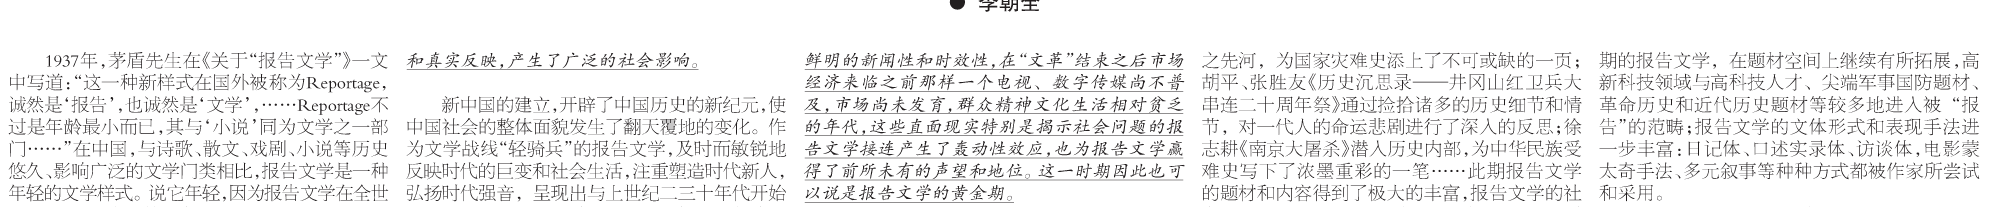 ● 李朝全
1937年，茅盾先生在《关于“报告文学”》一文
中写道：“这一种新样式在国外被称为Reportage，
诚然是‘报告’，也诚然是‘文学’，……Reportage不
过是年龄最小而已，其与‘小说’同为文学之一部
门……”在中国，与诗歌、散文、戏剧、小说等历史
悠久、影响广泛的文学门类相比，报告文学是一种
年轻的文学样式。说它年轻，因为报告文学在全世
和真实反映，产生了广泛的社会影响。
新中国的建立，开辟了中国历史的新纪元，使
中国社会的整体面貌发生了翻天覆地的变化。作
为文学战线“轻骑兵”的报告文学，及时而敏锐地
反映时代的巨变和社会生活，注重塑造时代新人，
弘扬时代强音，呈现出与上世纪二三十年代开始
鲜明的新闻性和时效性，在“文革”结束之后市场
经济来临之前那样一个电视、数字传媒尚不普
及，市场尚未发育，群众精神文化生活相对贫乏
的年代，这些直面现实特别是揭示社会问题的报
告文学接连产生了轰动性效应，也为报告文学赢
得了前所未有的声望和地位。这一时期因此也可
以说是报告文学的黄金期。
之先河，为国家灾难史添上了不可或缺的一页；
胡平、张胜友《历史沉思录——井冈山红卫兵大
串连二十周年祭》通过捡拾诸多的历史细节和情
节，对一代人的命运悲剧进行了深入的反思；徐
志耕《南京大屠杀》潜入历史内部，为中华民族受
难史写下了浓墨重彩的一笔……此期报告文学
的题材和内容得到了极大的丰富，报告文学的社
期的报告文学，在题材空间上继续有所拓展，高
新科技领域与高科技人才、尖端军事国防题材、
革命历史和近代历史题材等较多地进入被“报
告”的范畴；报告文学的文体形式和表现手法进
一步丰富：日记体、口述实录体、访谈体，电影蒙
太奇手法、多元叙事等种种方式都被作家所尝试
和采用。